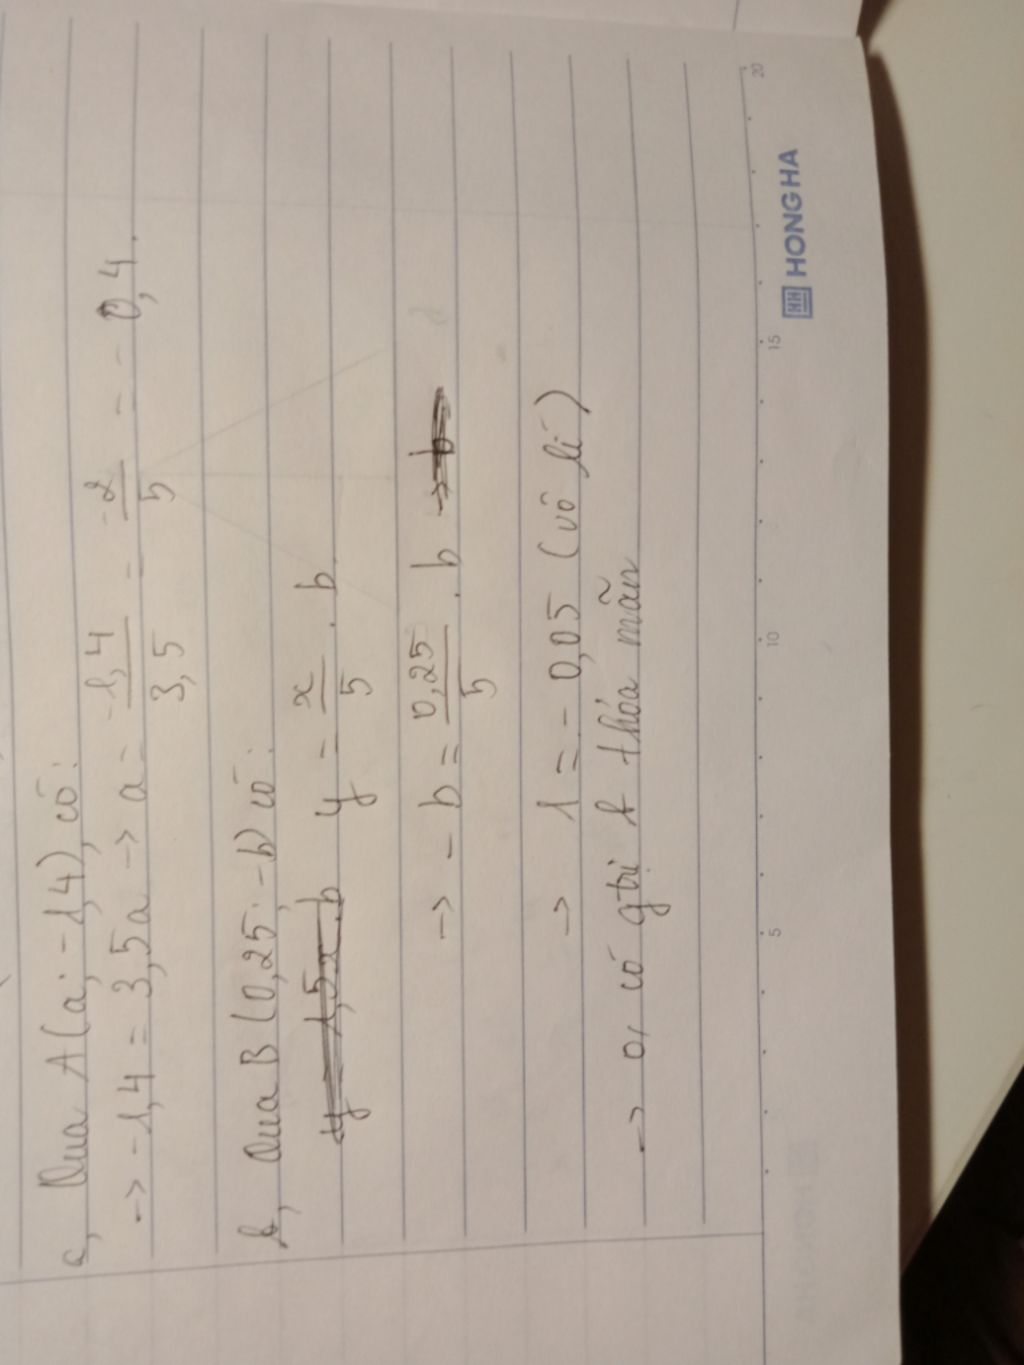 a, Qua A(a; -1,4), có:
-> -1,4 = 3,5a -> a = -1,4/3,5 = -2/5 = -0,4.
b, Qua B(0,25; -b) có:
y = 1,5x.b y = x/5 . b
-> -b = 0,25/5 . b -> b
-> 1 = -0,05 (vô lí)
-> 0, có gtrị b thỏa mãn
5 10 15 20
HH HONG HA